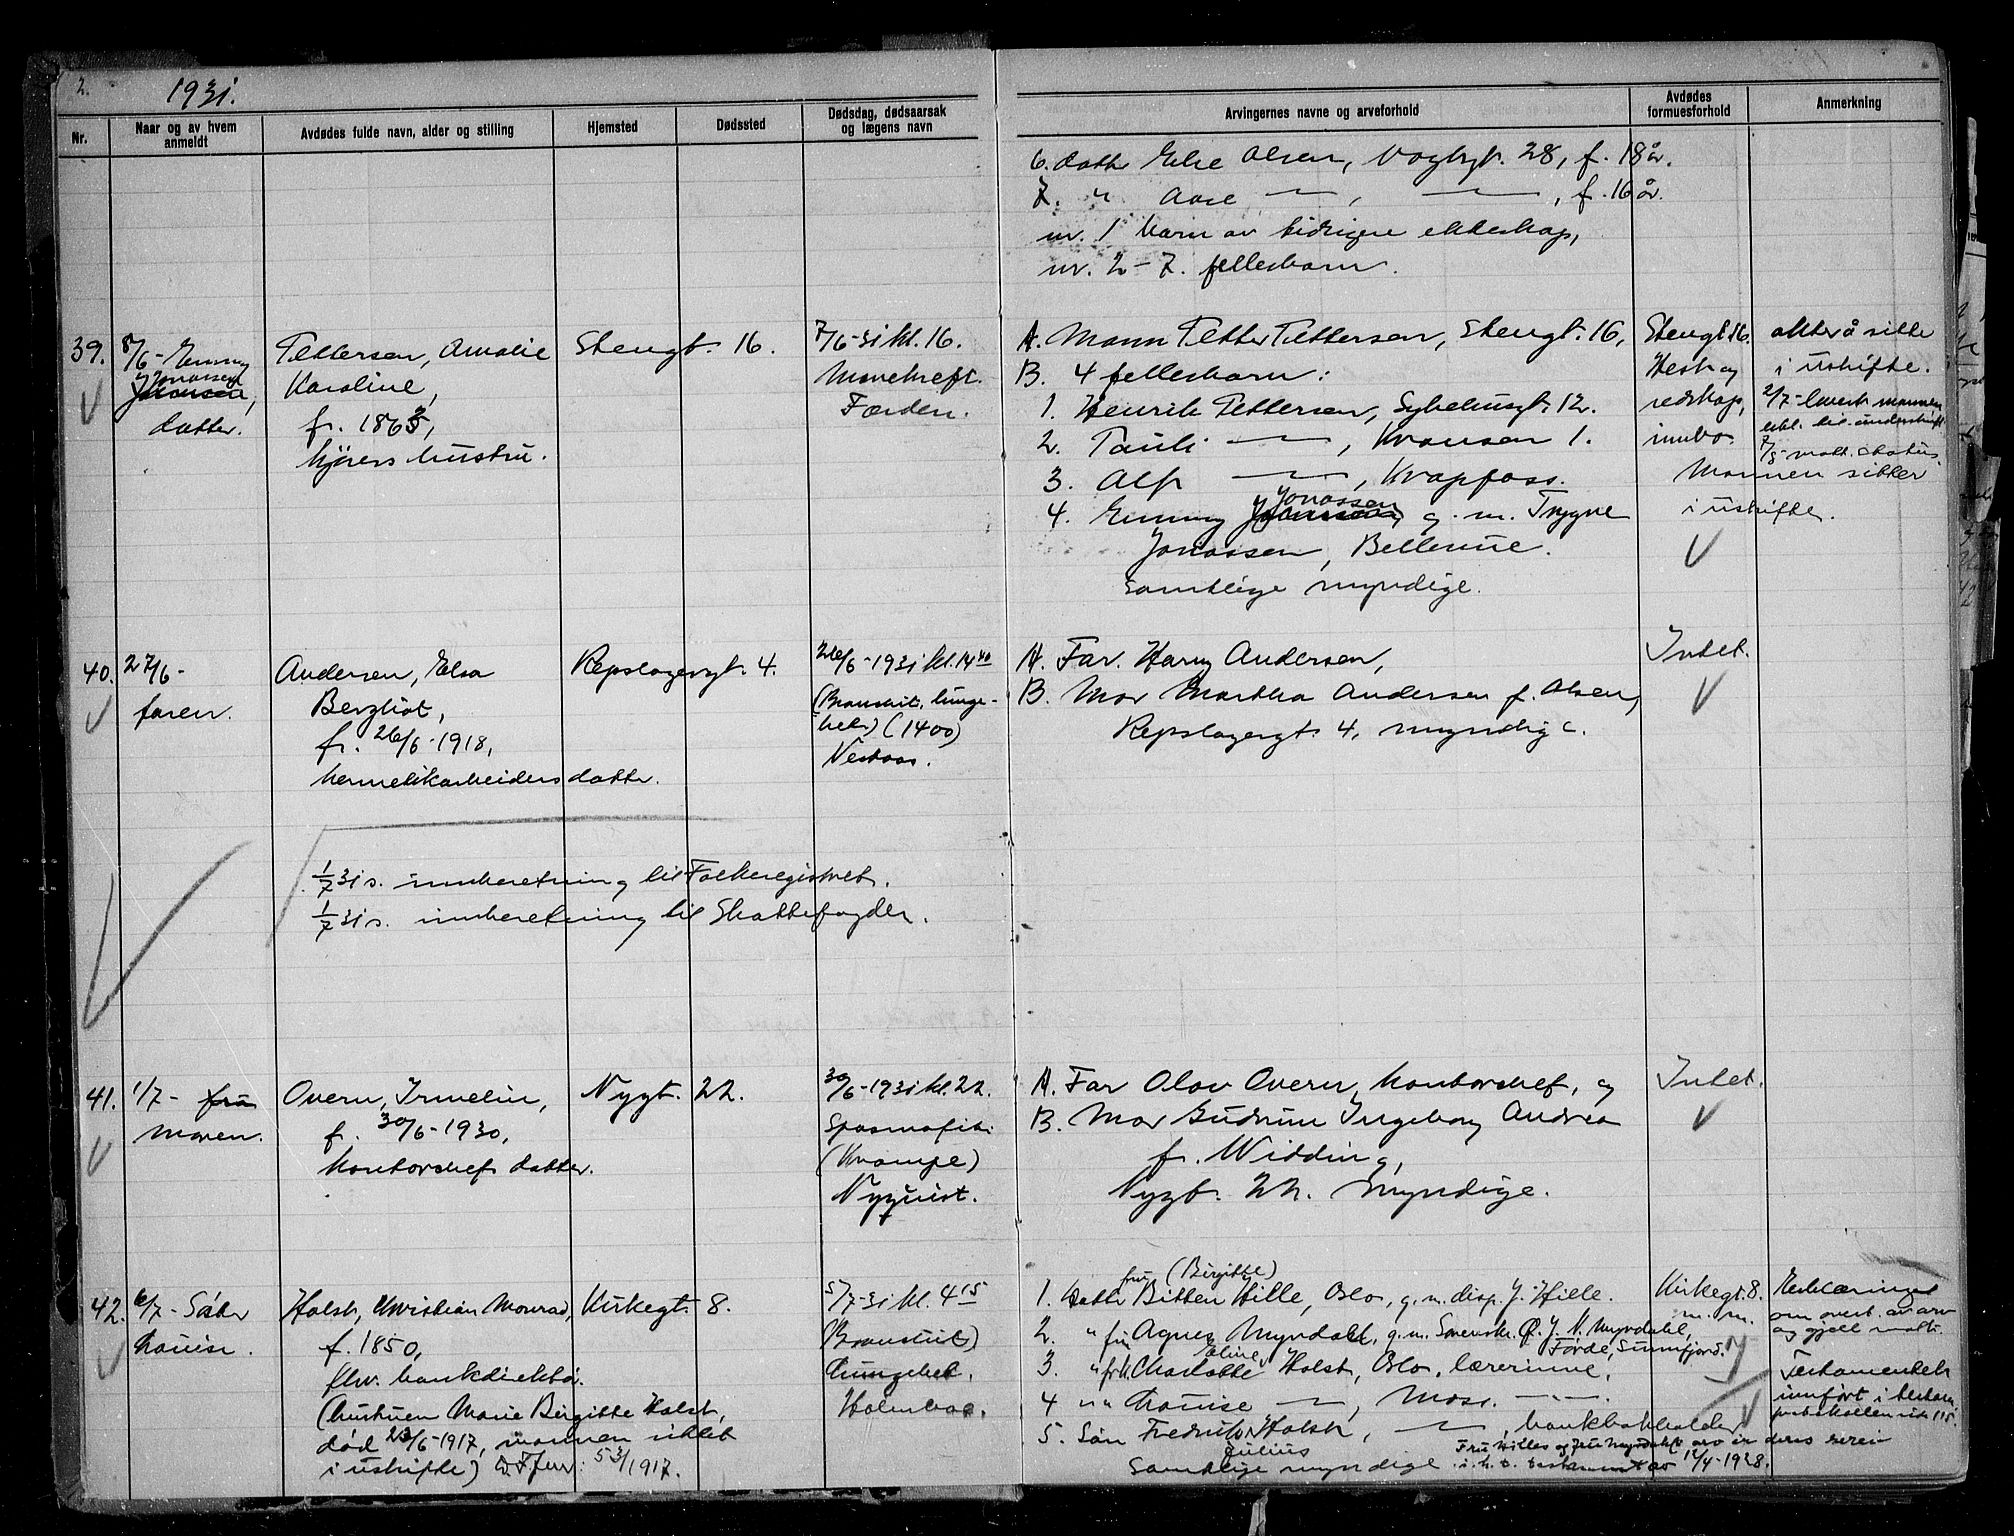 2.
1931.
Nr.
Naar og av hvem anmeldt
Avdødes fulde navn, alder og stilling
Hjemsted
Dødssted
Dødsdag, dødsaarsak og lægens navn
Arvingernes navne og arveforhold
Avdødes formuesforhold
Anmerkning
6. datter Else Olsen, Vogtsgt. 28, f. 18 år.
7. " Aase — , — , f. 16 år.
nr. 1 barn av tidligere ekteskap,
nr. 2 – 7. fellesbarn.
39.
8/6 - Emmy
Jonassen
datter.
Pettersen, Amalie
Karoline,
f. 1863,
kjørers hustru.
Stengt. 16.
7/6-31 kl. 16.
Mavekreft.
Førden.
A. Mann Petter Pettersen, Stengt. 16,
B. 4 fellesbarn:
1. Henrik Pettersen, Sykehusgt. 12.
2. Pauli — , Kransen 1.
3. Alf — , Krapfoss.
4. Emmy Jonassen g. m. Trygve
Jonassen, Bellevue.
Samtlige myndige.
Stengt. 16.
Hest og
redskap,
innbo
akter å sitte
i uskifte.
2/7- levert mannen
erkl. til underskrift.
7/8- mott. status.
Mannen sitter
i uskifte.
40.
27/6-
faren.
Andersen, Elsa
Bergliot,
f. 26/6-1918,
hermetikarbeiders datter.
Repslagergt. 4.
26/6-1931 kl. 14 40
(Bronchit, lunge-
bet.) (1400)
Nestaas.
A. Far. Harry Andersen,
B. Mor Martha Andersen f. Olsen,
Repslagergt. 4, myndige.
Intet.
1/7 31 s. innberetning til Folkeregistret.
1/7 31 s. innberetning til Skattefogden.
41.
1/7- fru
moren.
Overn, Irmelin,
f. 30/6-1930,
kontorchefs datter.
Nygt. 22.
30/6-1931 kl. 22.
Spasmofili
(Krampe)
Nyquist.
A. Far Olav Overn, kontorchef, og
B. Mor Gudrun Ingeborg Andrea
f. Widding,
Nygt. 22. Myndige.
Intet.
42.
6/7- Datter
Louise.
Holst, Christian Monrad,
f. 1850,
fhv. bankdirektør.
(hustruen Marie Birgitte Holst,
død 23/6-1917, mannen sittet
i uskifte) 53/1917.
Kirkegt. 8.
5/7-31 kl. 4 15
(Bronchit)
Lungebet.
Holmboe.
fru (Birgitte)
1. Datter Bitten Hille, Oslo, g. m. disp. J. Hille.
2. " fru Agnes Myrdahl, g. m. Sorenskr. Ø. J. N. Myrdahl,
Førde, Sunnfjord.
3. " frk. Charlotte Eline Holst, Oslo, lærerinne,
4 " " Louise — , Moss. — " —
5. Søn Fredrik Julius Holst, — , bankbokholder
Samtlige myndige.
Fru Hilles og fru Myrdahls arv er deres særeie
i.h.t. testament av 12/4-1928.
Kirkegt. 8.
m. m.
Erklæringer
om overt. av arv
og gjeld mott.
Testamentet
innført i testam.
protokollen side 115.